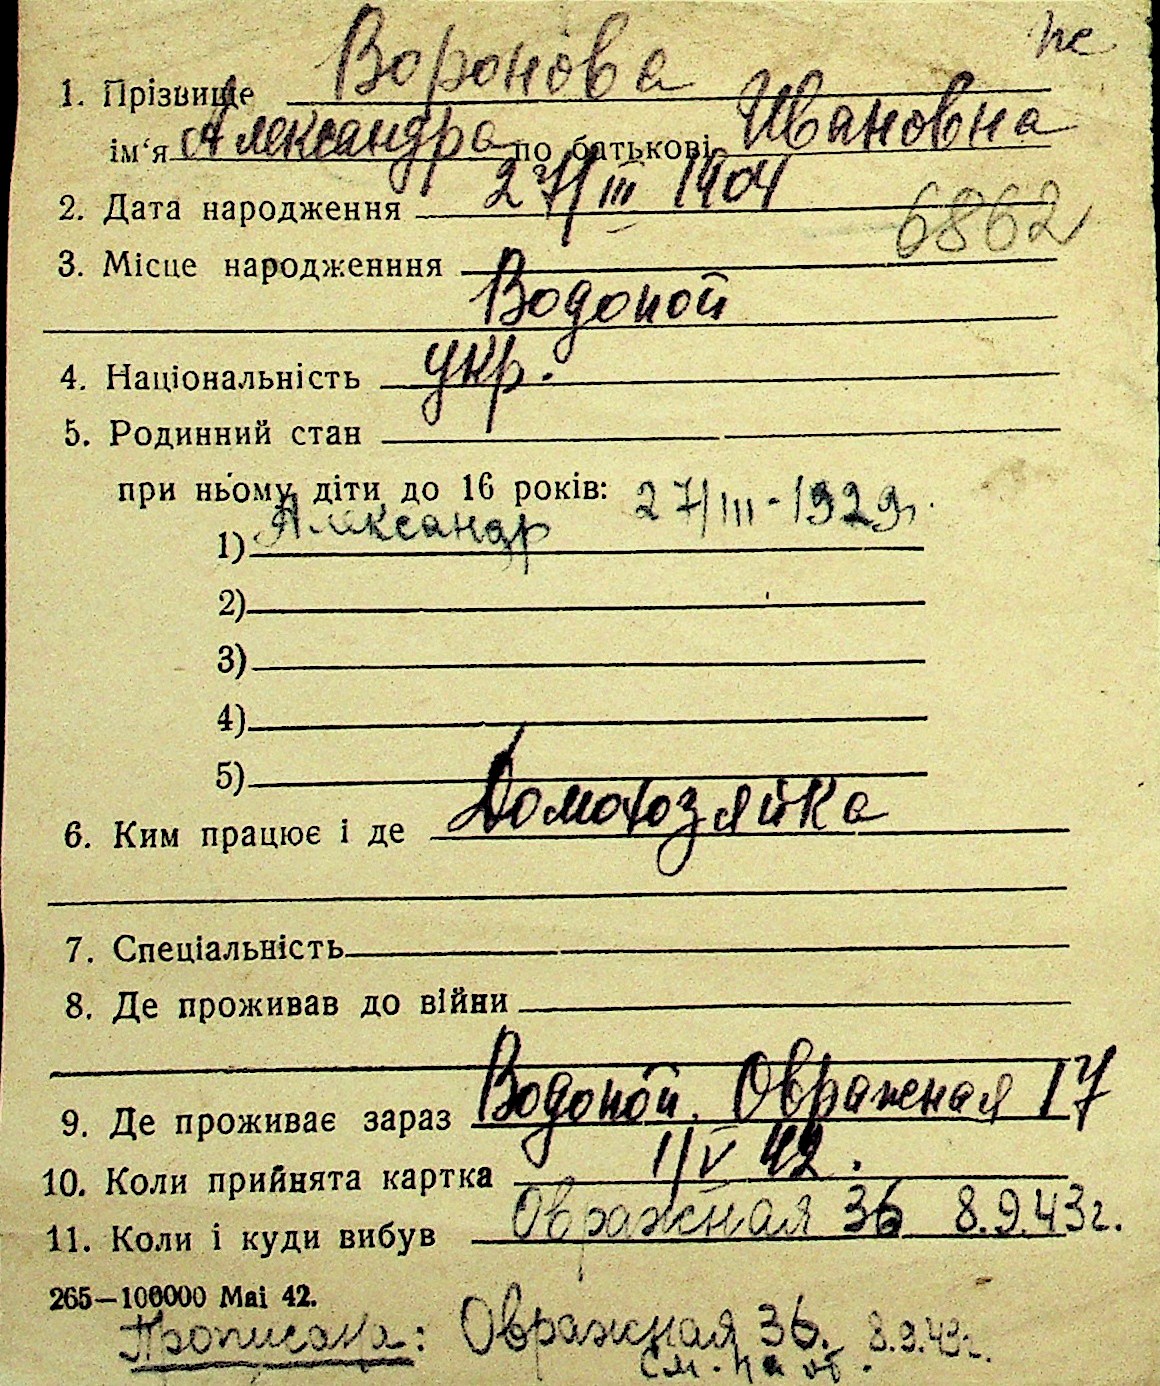 пс
1. Прізвище Воронова
ім‘я Александра по батькові Ивановна
2. Дата народження 27/III 1904
6862
3. Місце народженння
Водопой
4. Національність укр.
5. Родинний стан
при ньому діти до 16 років: 27/III-1929г.
1) Александр
2)
3)
4)
5)
6. Ким працює і де Домохозяйка
7. Спеціальність
8. Де проживав до війни
9. Де проживає зараз Водопой. Овражная 17
10. Коли прийнята картка 1/V 42.
11. Коли і куди вибув Овражная 36 8.9.43г.
265—100000 Mai 42.
Прописана: Овражная 36. 8.9.43г.
см. на об.